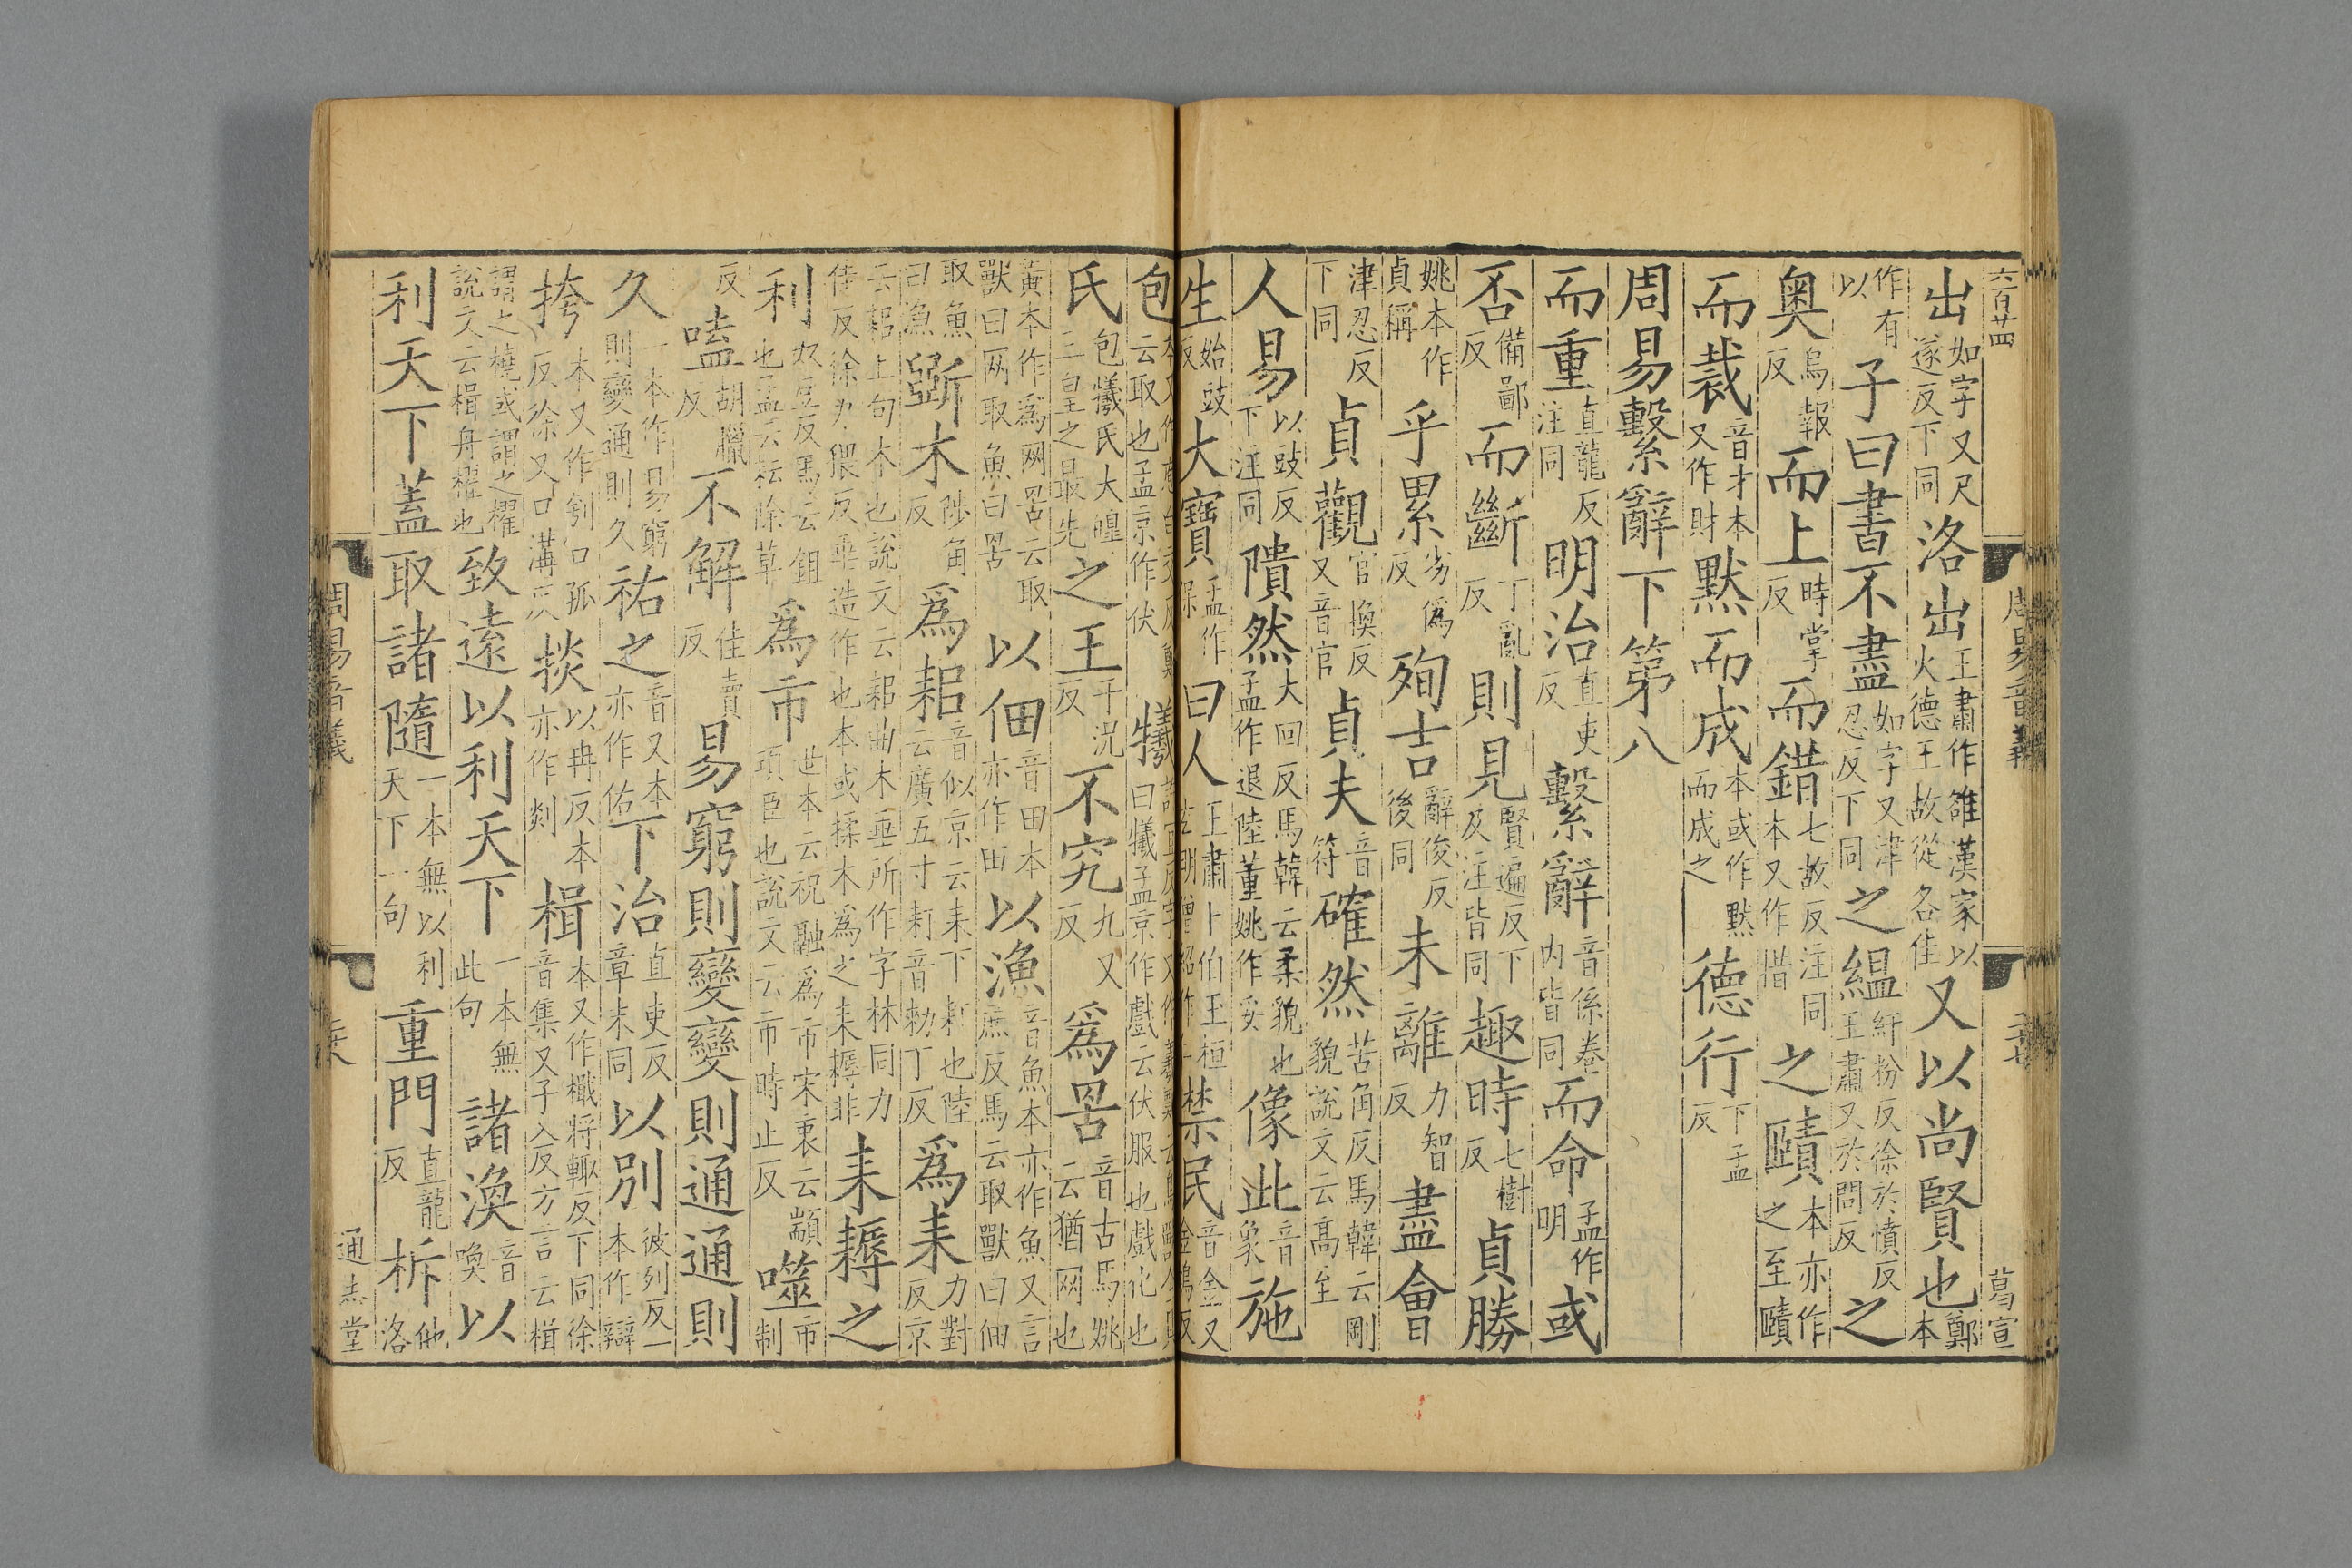 六百廿四
周易音義
二十七
葛宣
出如字又尺遂反下同洛出王肅作雒漢家以火德王故從各隹又以尚賢也鄭本
作有以子曰書不盡如字又津忍反下同之縕紆粉反徐於憤反王肅又於問反之
奥烏報反而上時掌反而錯七故反注同本又作措之賾本亦作之至賾
而裁音才本又作財黙而成本或作黙而成之德行下孟反
周易繫辭下第八
而重直龍反注同明治直吏反繫辭音係卷内皆同而命孟作明或
否備鄙反而斷丁亂反則見賢遍反下及注皆同趣時七樹反貞勝
姚本作貞稱乎累劣僞反殉吉辭俊反後同未離力智反盡會
津忍反下同貞觀官換反又音官貞夫音符確然苦角反馬韓云剛貌說文云高至
人易以豉反下注同隤然大回反馬韓云柔貌也孟作退陸董姚作妥像此音象施
生始豉反大寶孟作保曰人王肅卞伯玉桓禁民音金又
包云取也孟京作伏犧曰犧孟京作戲云伏服也戲化也
氏包犧氏大皥三皇之最先之王于況反不究九又反爲罟音古馬姚云猶网也
黃本作爲网罟云取獸曰网取魚曰罟以佃音田本亦作田以漁音魚本亦作魚又言庶反馬云取獸曰佃
取魚曰漁斵木陟角反爲耜音似京云耒下耓也陸云廣五寸耓音勑丁反爲耒力對反京
云耜上句木也說文云耜曲木垂所作字林同力佳反徐力猥反垂造作也本或揉木爲之耒耨非耒耨之
利奴豆反馬云鉏也孟云耘除草爲市世本云祝融爲市宋衷云顓頊臣也說文云市時止反噬市制
反嗑胡臘反不解佳賣反易窮則變變則通通則
久一本作易窮則變通則久祐之音又本亦作佑下治直吏反章末同以別彼列反一本作辯
挎本又作刳口孤反徐又口溝反掞以冉反本亦作剡楫本又作檝將輙反下同徐音集又子入反方言云楫
謂之橈或謂之櫂說文云楫舟櫂也致遠以利天下一本無此句諸渙音喚以
利天下蓋取諸隨一本無以利天下一句重門直龍反柝他洛
周易音義
通志堂